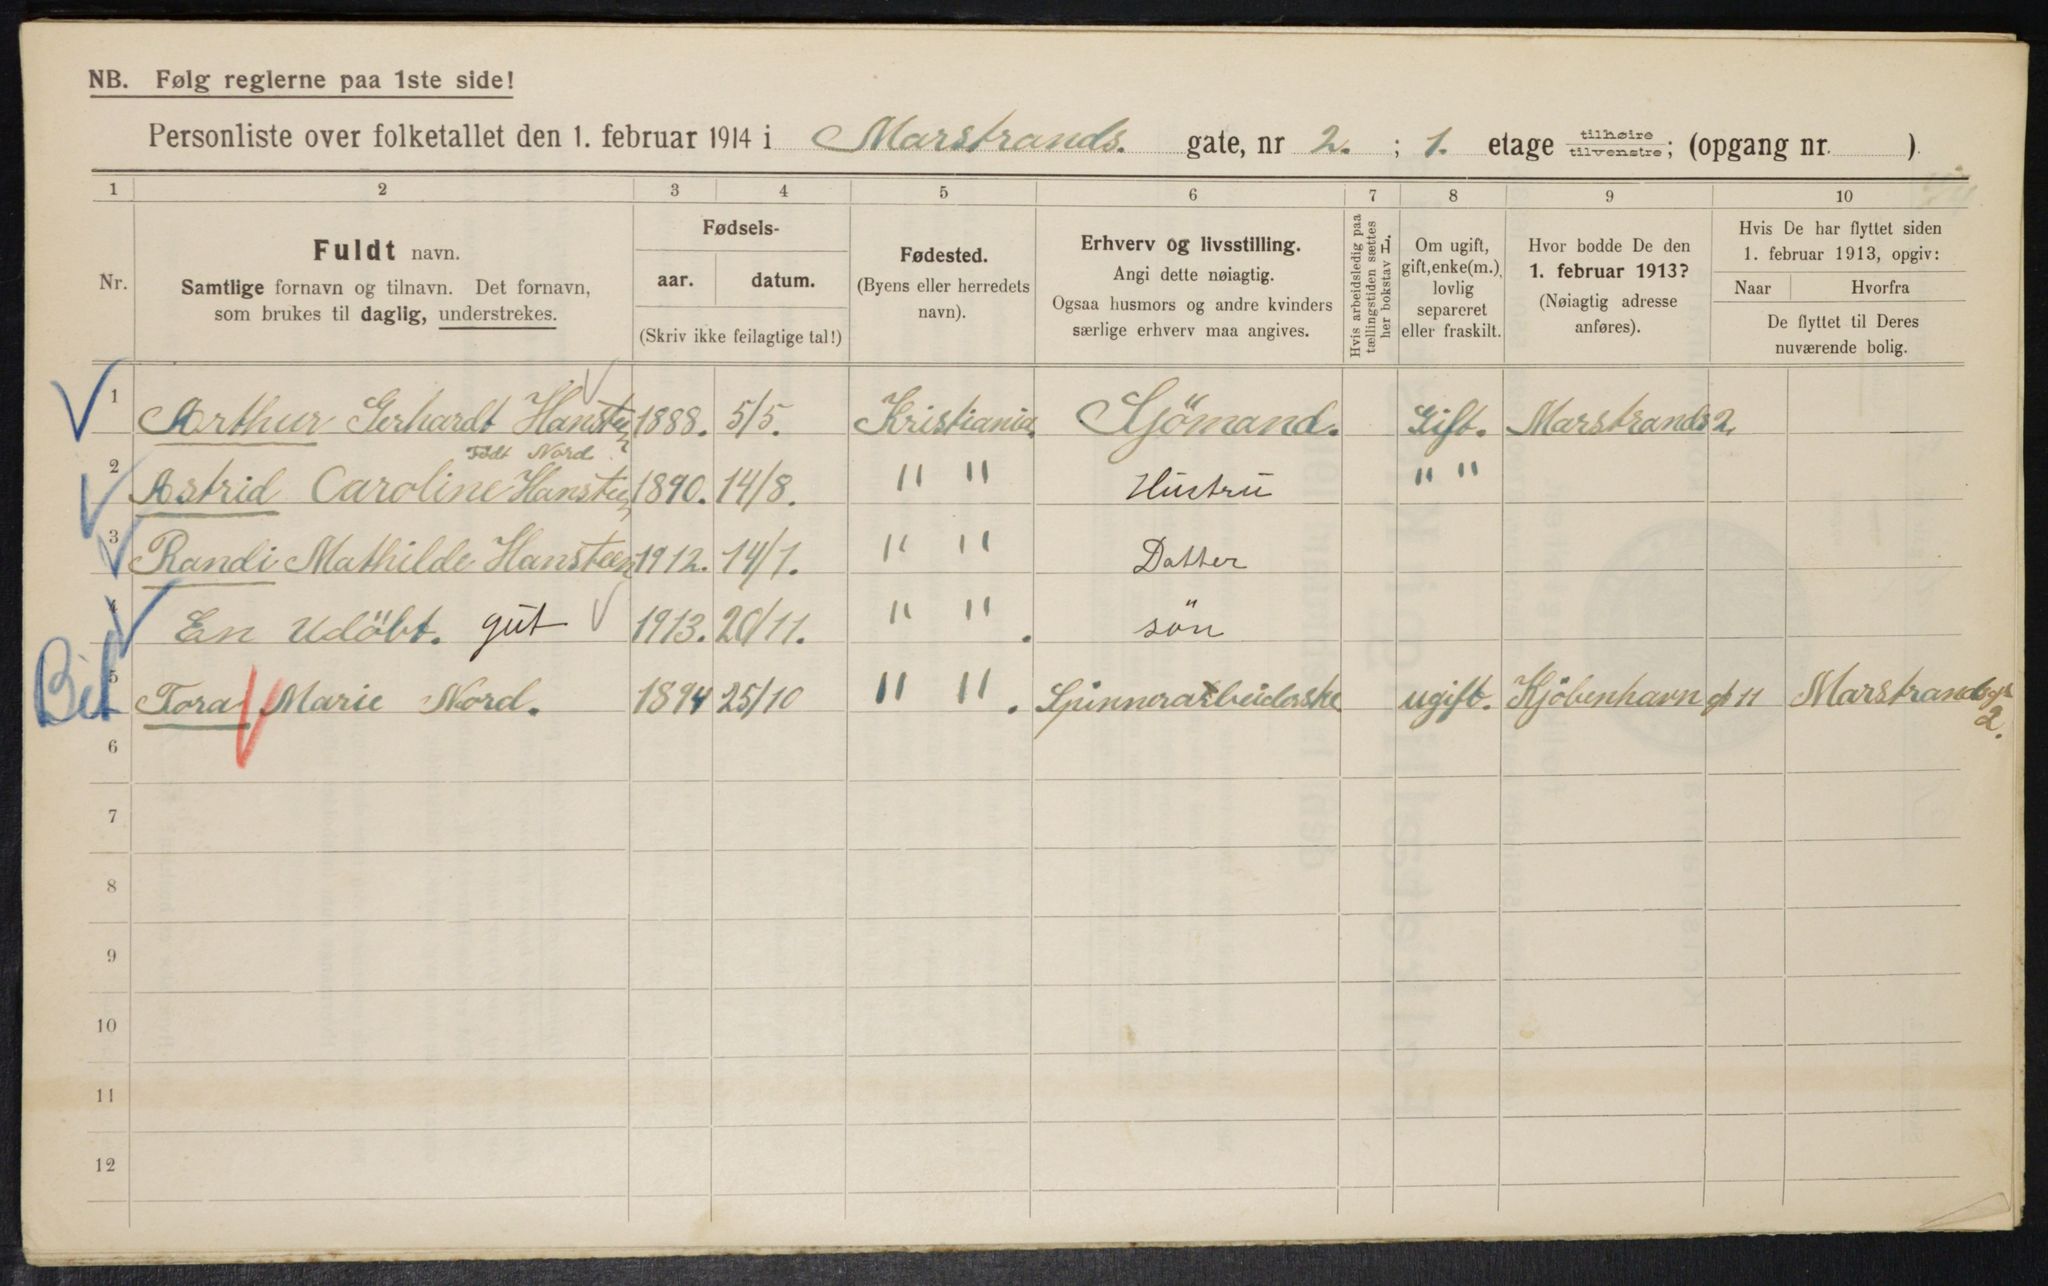 NB. Følg reglerne paa 1ste side!
Personliste over folketallet den 1. februar 1914 i Marstrands. gate, nr 2. ; 1. etage tilhøire/tilvenstre; (opgang nr. ).
1 2 3 4 5 6 7 8 9 10
Nr.
Fuldt navn.
Samtlige fornavn og tilnavn. Det fornavn,
som brukes til daglig, understrekes.
Fødsels-
aar. datum.
(Skriv ikke feilagtige tal!)
Fødested.
(Byens eller herredets
navn).
Erhverv og livsstilling.
Angi dette nøiagtig.
Ogsaa husmors og andre kvinders
særlige erhverv maa angives.
Hvis arbeidsledig paa
tællingstiden sættes
her bokstav L.
Om ugift,
gift, enke(m.),
lovlig
separeret
eller fraskilt.
Hvor bodde De den
1. februar 1913?
(Nøiagtig adresse
anføres).
Hvis De har flyttet siden
1. februar 1913, opgiv:
Naar Hvorfra
De flyttet til Deres
nuværende bolig.
1 Arthur Gerhardt Hansteen 1888. 5/5. Kristiania. Sjömand. Gift. Marstrands 2.
Födt Nord.
2 Astrid Caroline Hansteen 1890. 14/8. " " Hustru " "
3 Randi Mathilde Hansteen 1912. 14/1. " " Datter
4 En udöbt. gut 1913. 20/11. " " . sön
Bil
5 Tora Marie Nord. 1894 25/10 " " . Spinnerarbeiderske ugift. Kjöbenhavn 11 Marstrandsgt
2.
6
7
8
9
10
11
12